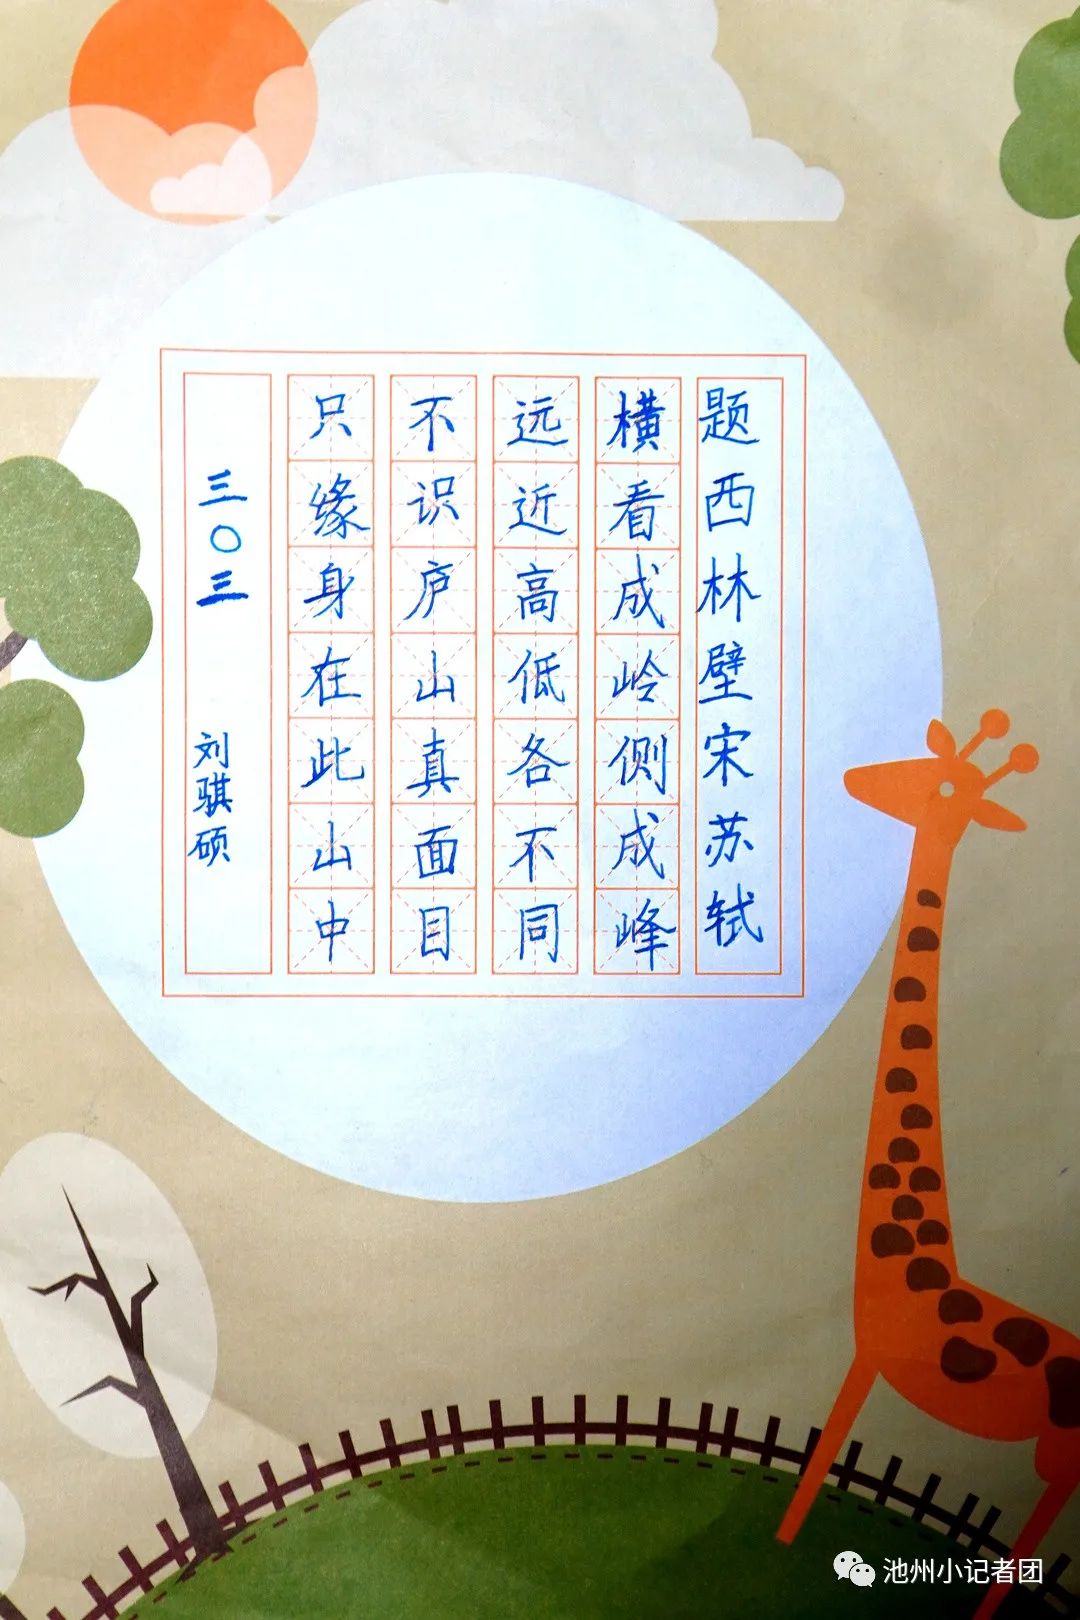 题西林壁宋苏轼
横看成岭侧成峰
远近高低各不同
不识庐山真面目
只缘身在此山中
三〇三 刘骐硕
池州小记者团